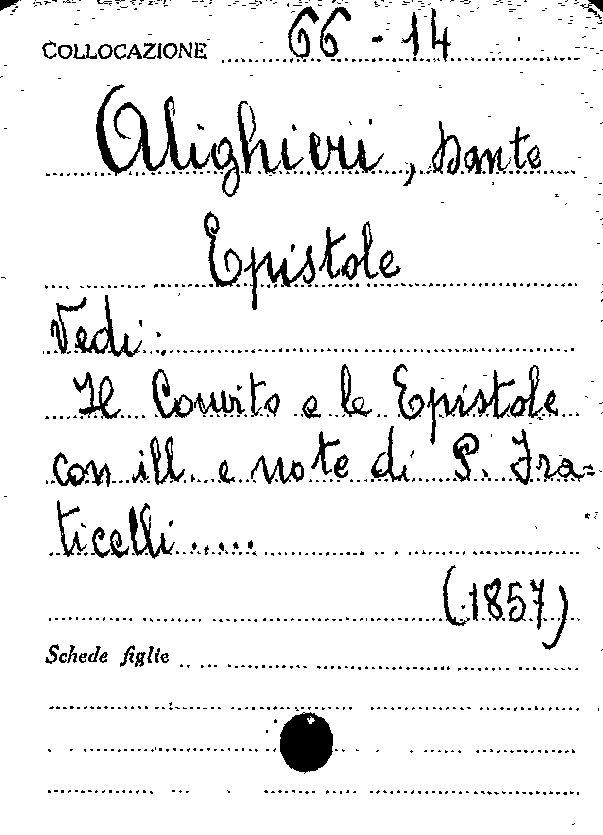 COLLOCAZIONE 66 - 14
Alighieri, Dante
Epistole
Vedi:
Il Convito e le Epistole
con ill. e note di P. Fra=
ticelli.....
(1857)
Schede figlie